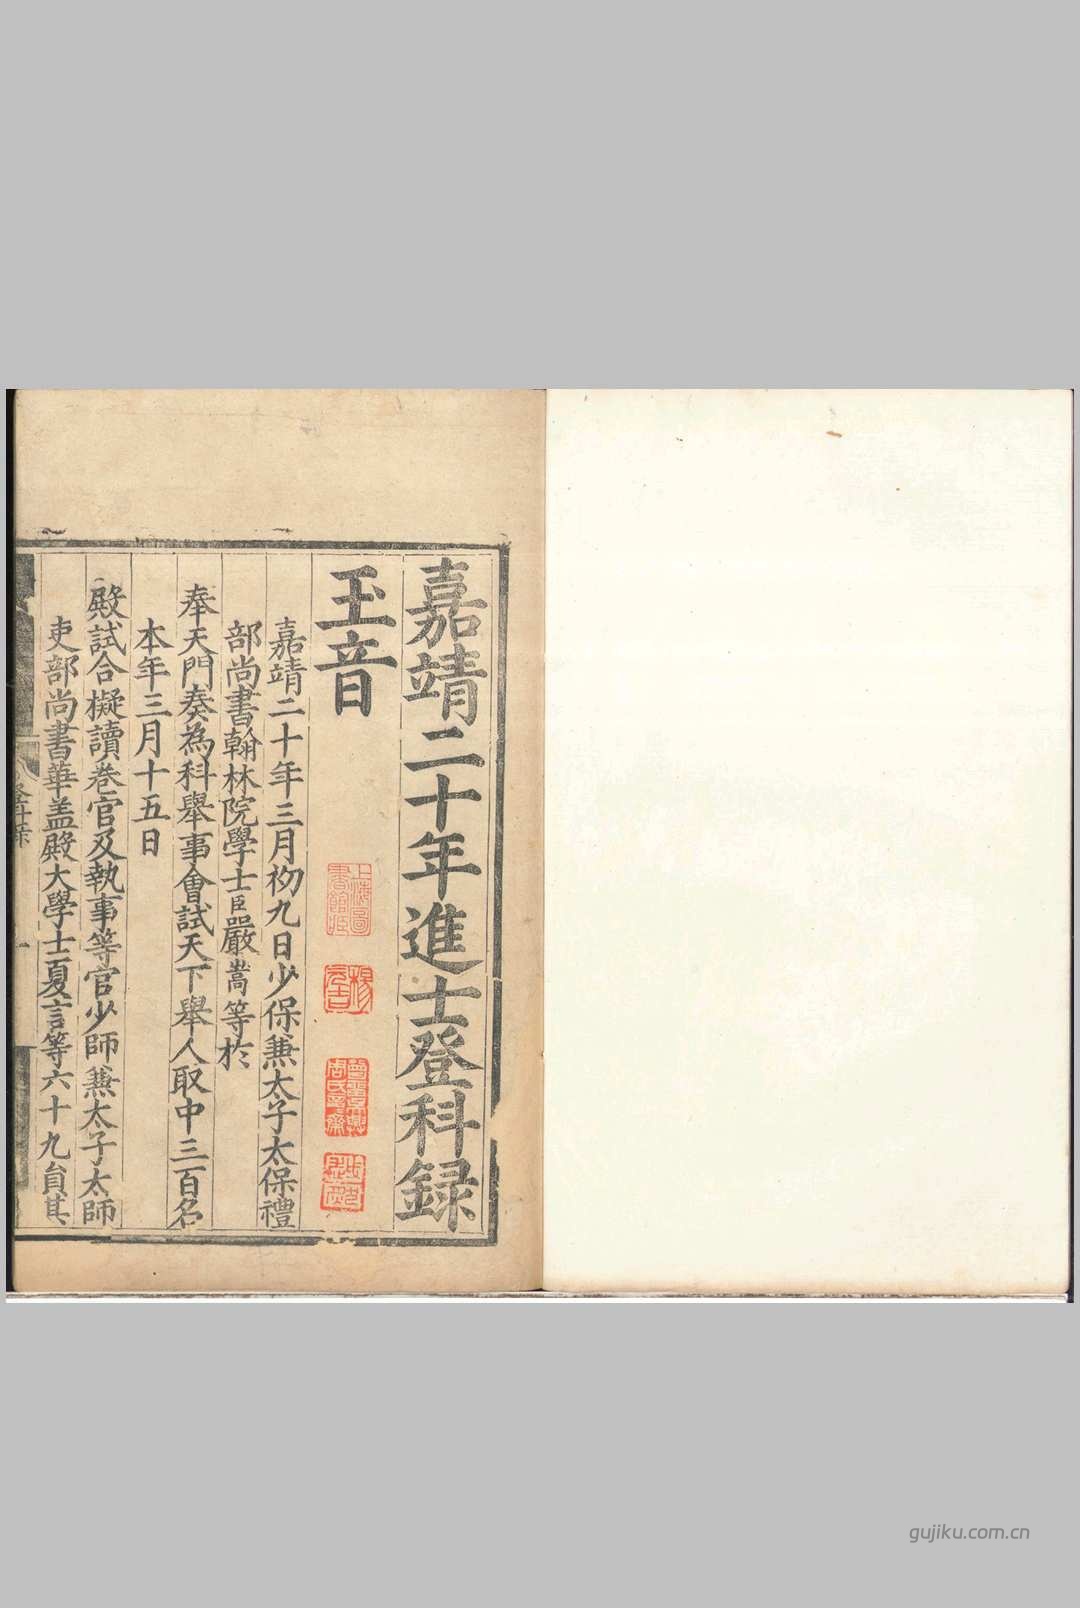 嘉靖二十年進士登科録
玉音
嘉靖二十年三月初九日少保兼太子太保禮
部尚書翰林院學士臣嚴嵩等於
奉天門奏為科舉事會試天下舉人取中三百名
本年三月十五日
殿試合擬讀卷官及執事等官少師兼太子太師
吏部尚書華盖殿大學士夏言等六十九員其
一
上海圖
書館臧
gujiku.com.cn